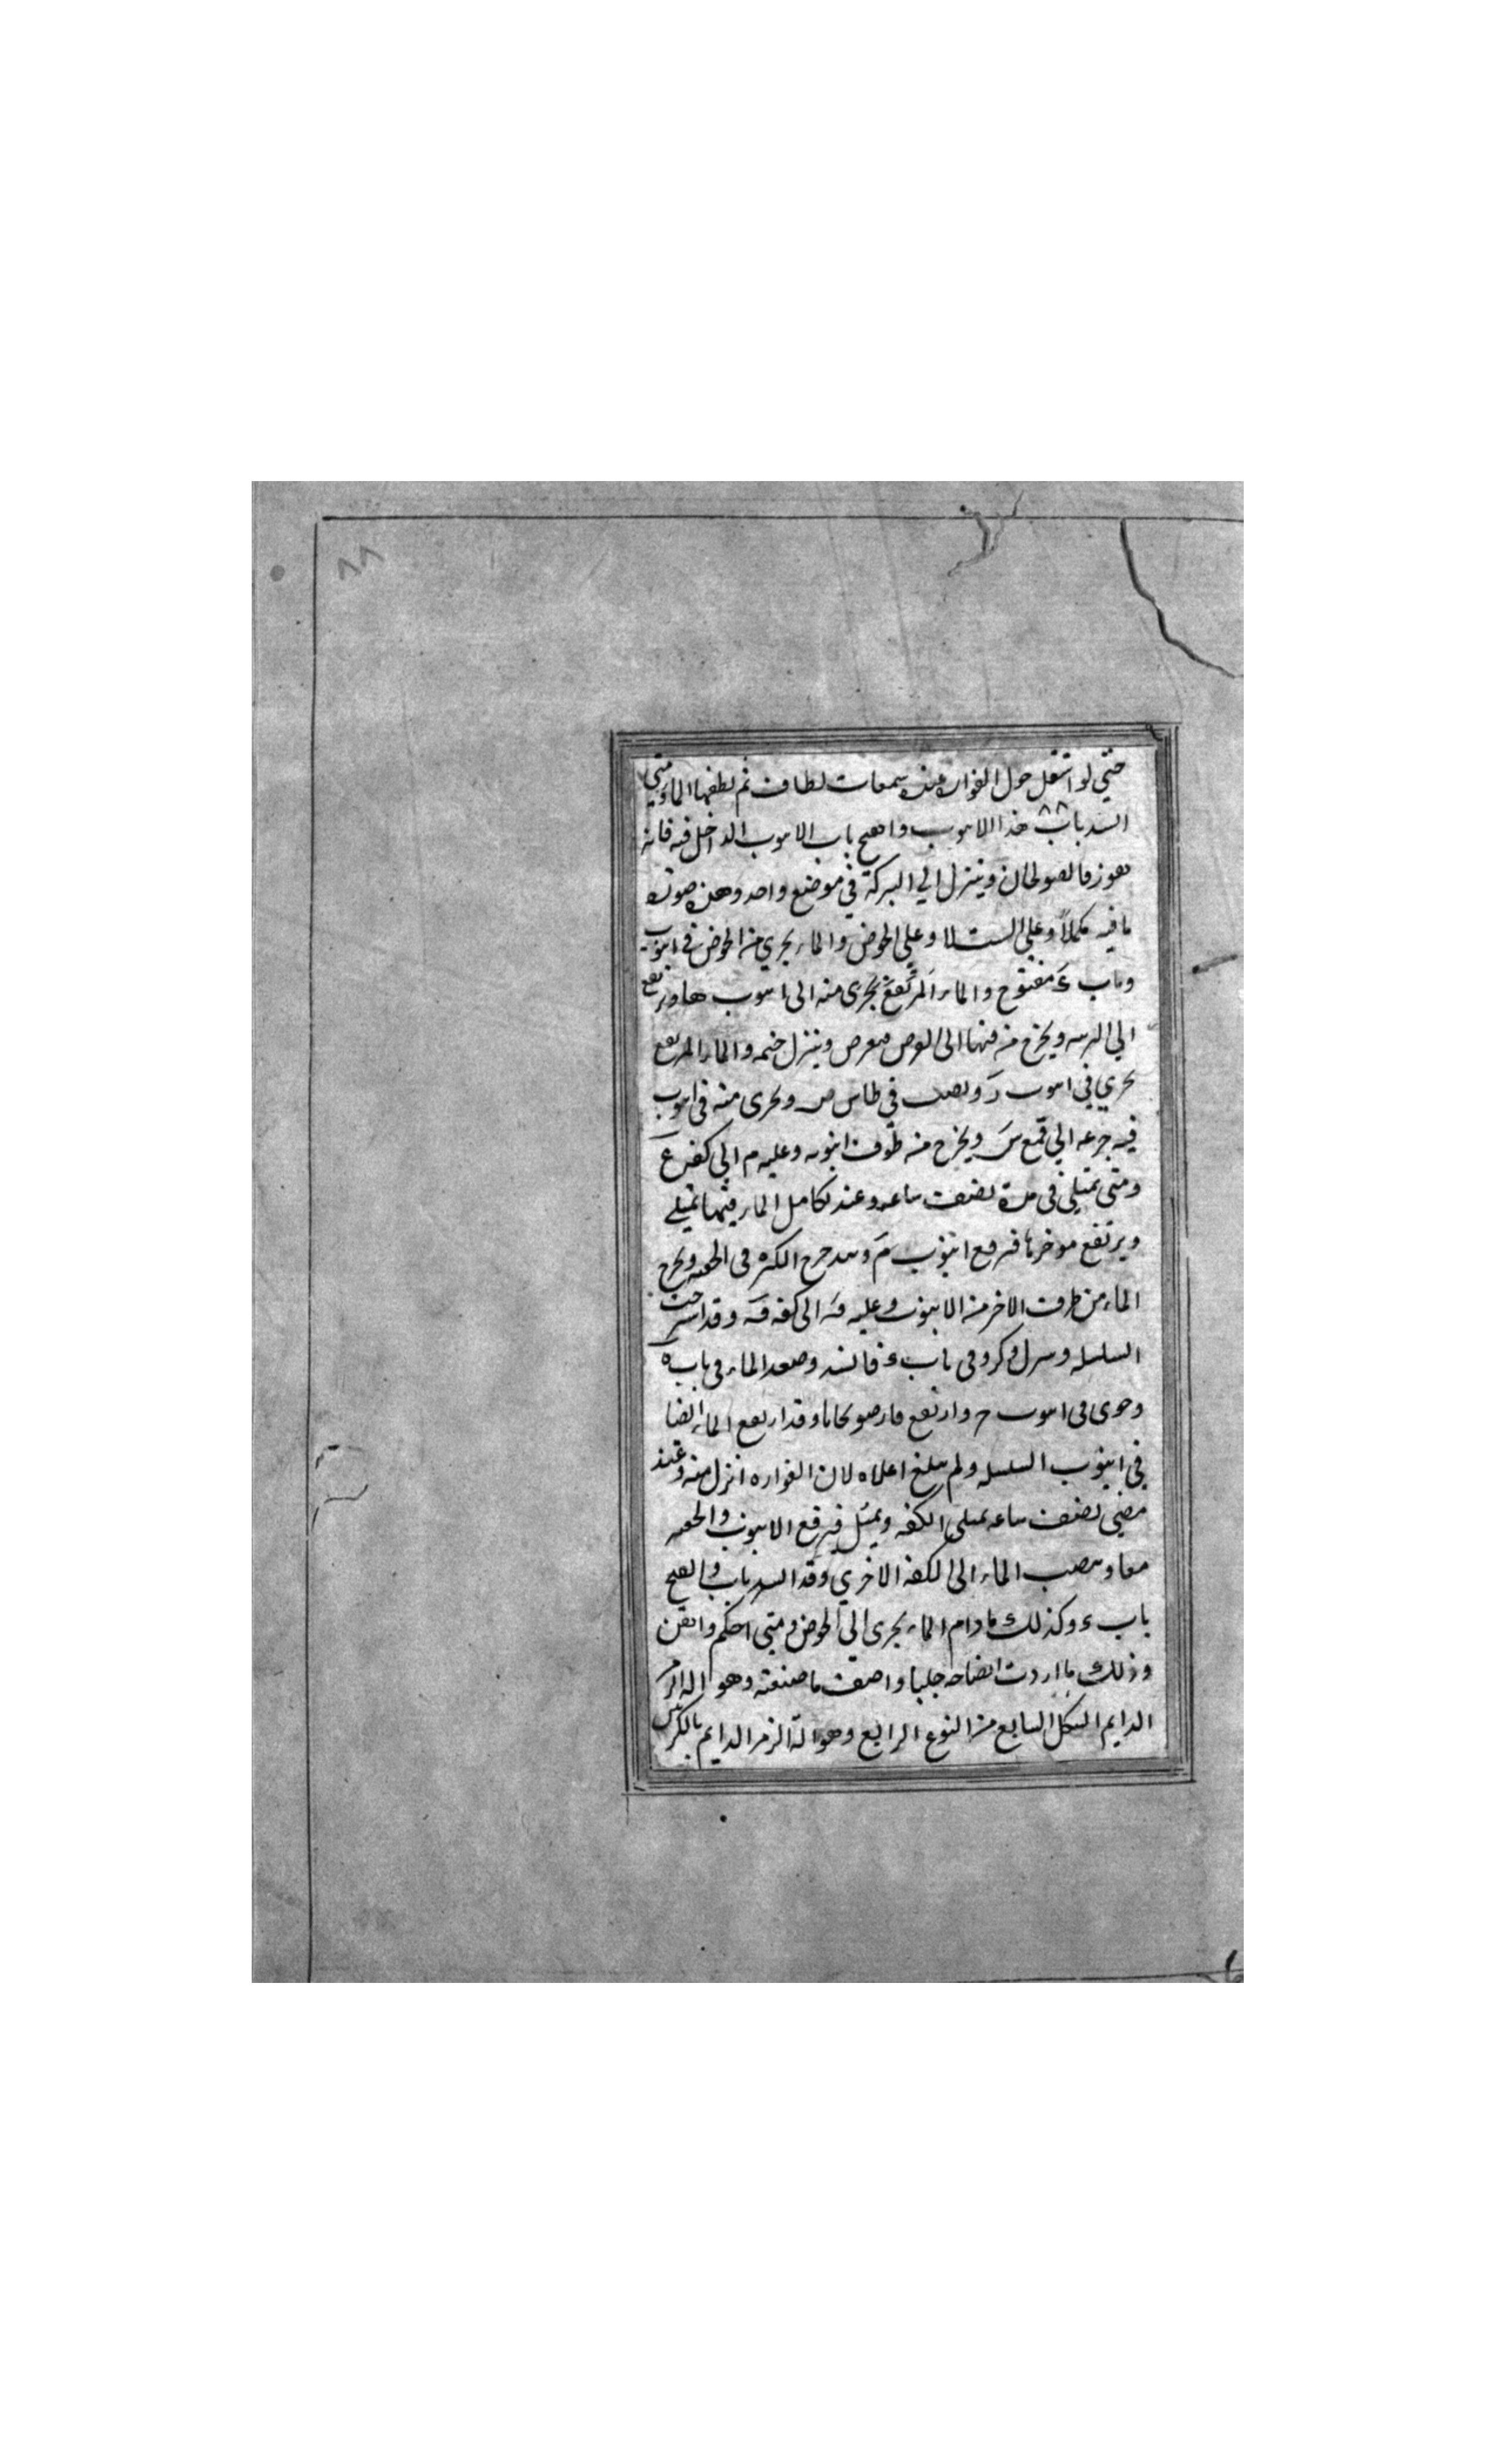 حتي لو اشتعل حول الفواره عده شمعات لطاف لم يطفها الماء ومتي
انسد باب هذا الانبوب وانفتح باب الانبوب الداخل فيه فانه
يفوز فالصولجان وينزل الي البركة في موضع واحد وهذه صورة
ما فيه مكملاً وعلي الحوض والماء يجري من الحوض في انبوب
وباب ءَ مفتوح والماء المرتفع يجري منه الى انبوب
الي ويخرج من فيها الى وينزل والماء المرتفع
يجري في انبوب دَ ويصب في طاس ص ويجرى منه فى انبوب
فيه جزعه الي قمع سَ ويخرج منه طرف انبوب وعليه م الي كفه عَ
ومتى تمتلي في مدة نصف ساعه وعند تكامل الماء فيها تميل
ويرتفع موخرها فترفع انبوب مَ وتتدحرج الكره فى ويخرج
الماء من طرف الاخر من الانبوب وعليه فَ الى كفه فَ وقد استرخت
السلسله ونزل وكر وفى باب ء فانسد وصعد الماء فى باب ه
وجرى فى انبوب ح وارتفع فار صولجانا وقد ارتفع الماء ايضا
في انبوب السلسله ولم يبلغ اعلاه لان الفواره انزل منه وعند
مضي نصف ساعه تمتلى الكفه وتميل فيرفع الانبوب
معا ويصب الماء الى الكفه الاخري وقد انسد باب وانفتح
باب ء وكذلك ما دام الماء يجرى الى الحوض ومتى احكم واتقن
وذلك ما اردت ايضاحه جليا واصف ما صنعته وهو اله الزمر
الدايم الشكل السابع من النوع الرابع وهو الة الزمر الدايم بالكرتين